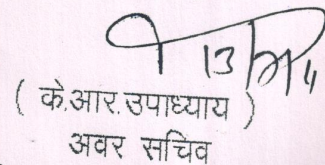 ( के.आर.उपाध्याय )
अवर सचिव